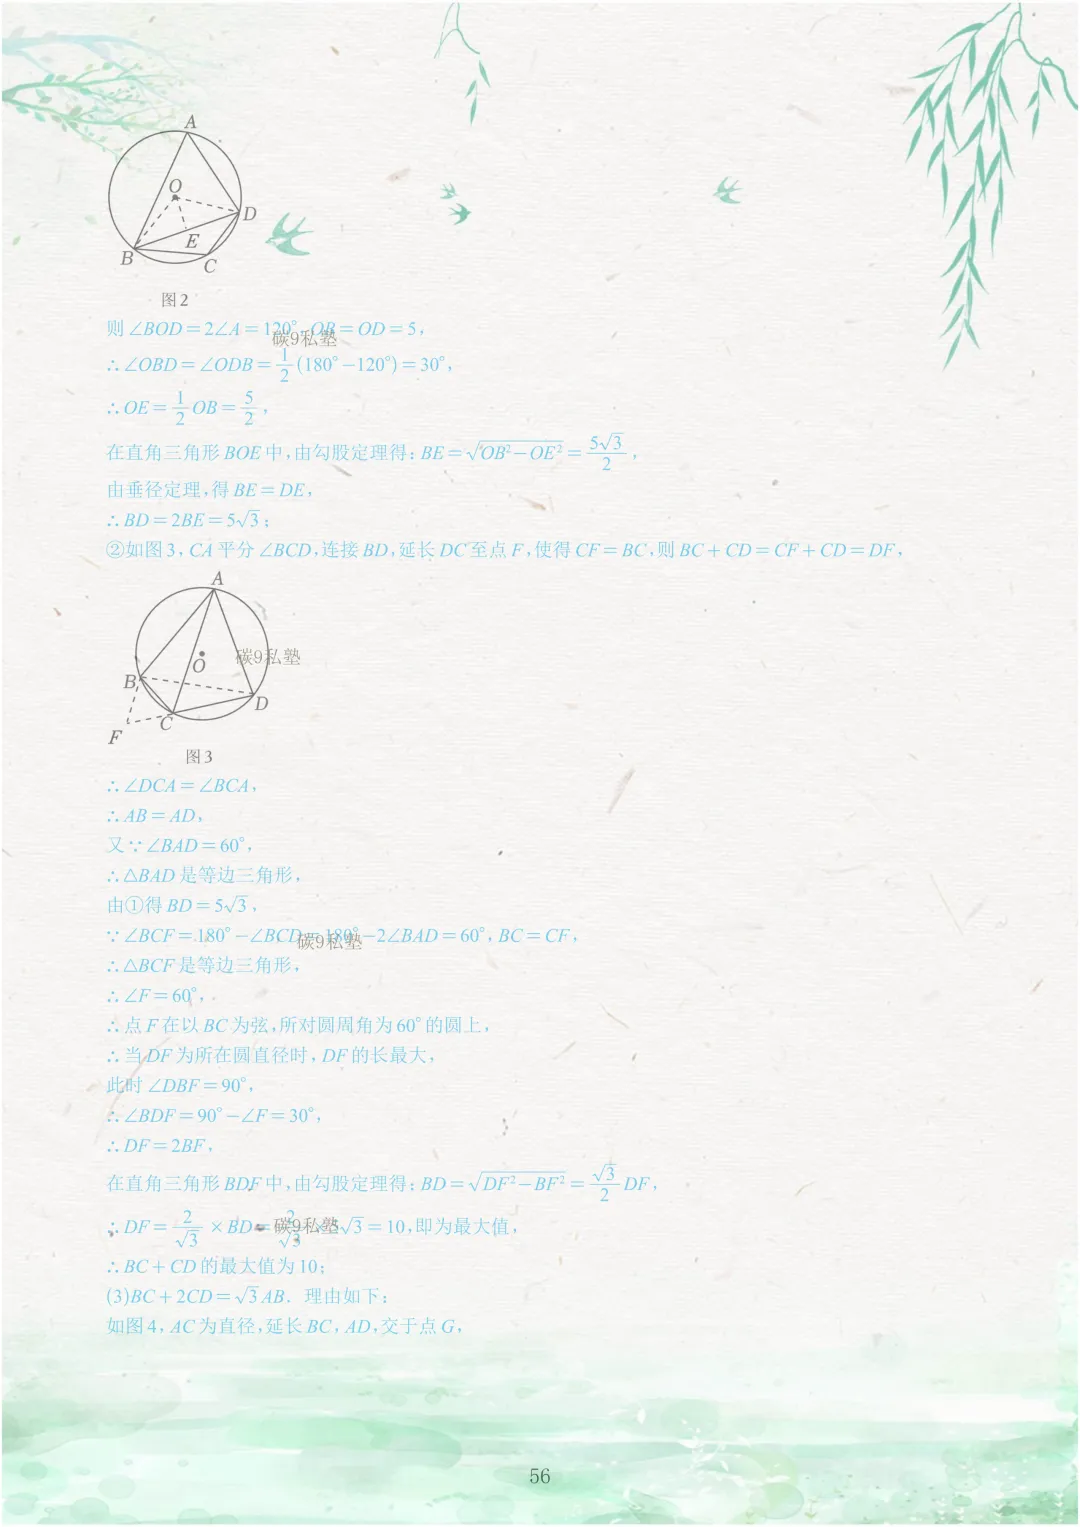 A
O
D
E
B
C
图2
则∠BOD=2∠A=120°,OB=OD=5,
碳9私塾
∴∠OBD=∠ODB=1/2(180°-120°)=30°,
∴OE=1/2OB=5/2,
在直角三角形BOE中,由勾股定理得:BE=√(OB²-OE²)=5√3/2,
由垂径定理,得BE=DE,
∴BD=2BE=5√3;
②如图3,CA平分∠BCD,连接BD,延长DC至点F,使得CF=BC,则BC+CD=CF+CD=DF,
A
碳9私塾
O
B
D
C
F
图3
∴∠DCA=∠BCA,
∴AB=AD,
又∵∠BAD=60°,
∴△BAD是等边三角形,
由①得BD=5√3,
∵∠BCF=180°-∠BCD=180°-2∠BAD=60°,BC=CF,
碳9私塾
∴△BCF是等边三角形,
∴∠F=60°,
∴点F在以BC为弦,所对圆周角为60°的圆上,
∴当DF为所在圆直径时,DF的长最大,
此时∠DBF=90°,
∴∠BDF=90°-∠F=30°,
∴DF=2BF,
在直角三角形BDF中,由勾股定理得:BD=√(DF²-BF²)=√3/2DF,
∴DF=2/√3×BD=2/√3×5√3=10,即为最大值,
碳9私塾
∴BC+CD的最大值为10;
(3)BC+2CD=√3AB.理由如下:
如图4,AC为直径,延长BC,AD,交于点G,
56